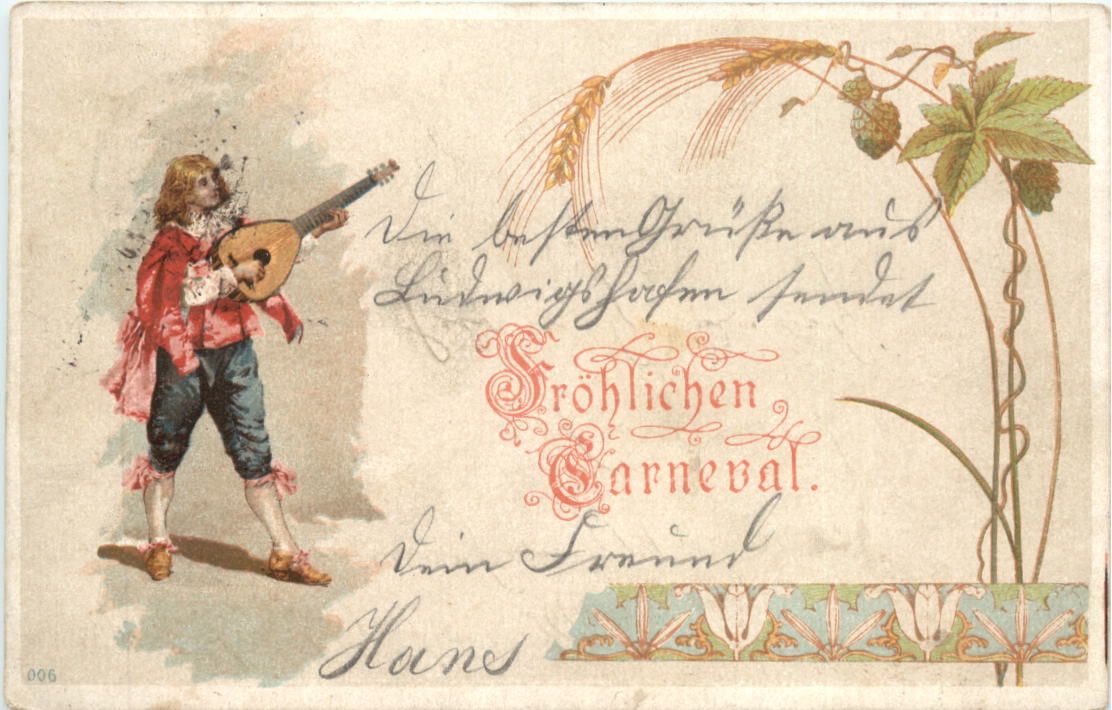 Die besten Grüße aus
Ludwigshafen sendet
Fröhlichen
Carneval.
Dein Freund
Hans
006